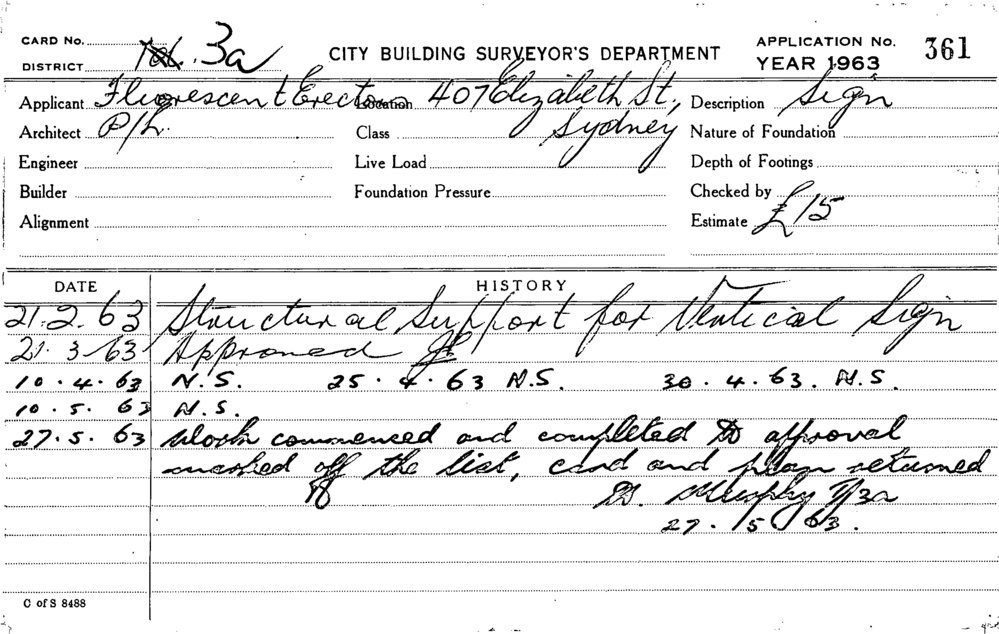 CARD No.
DISTRICT 3a
CITY BUILDING SURVEYOR'S DEPARTMENT
APPLICATION No. 361
YEAR 1963
Applicant Fluorescent Erection Location 407 Elizabeth St, Description Sign
Architect P/L. Class Sydney Nature of Foundation
Engineer Live Load Depth of Footings
Builder Foundation Pressure Checked by
Alignment Estimate £15
DATE HISTORY
21.2.63 Structural Support for Vertical Sign
21.3.63 Approved
10.4.63 N.S. 25.4.63 N.S. 30.4.63. N.S.
10.5.63 N.S.
27.5.63 Work commenced and completed to approval
marked off the list, card and plan returned
Murphy 3a
27.5.63.
C of S 8488